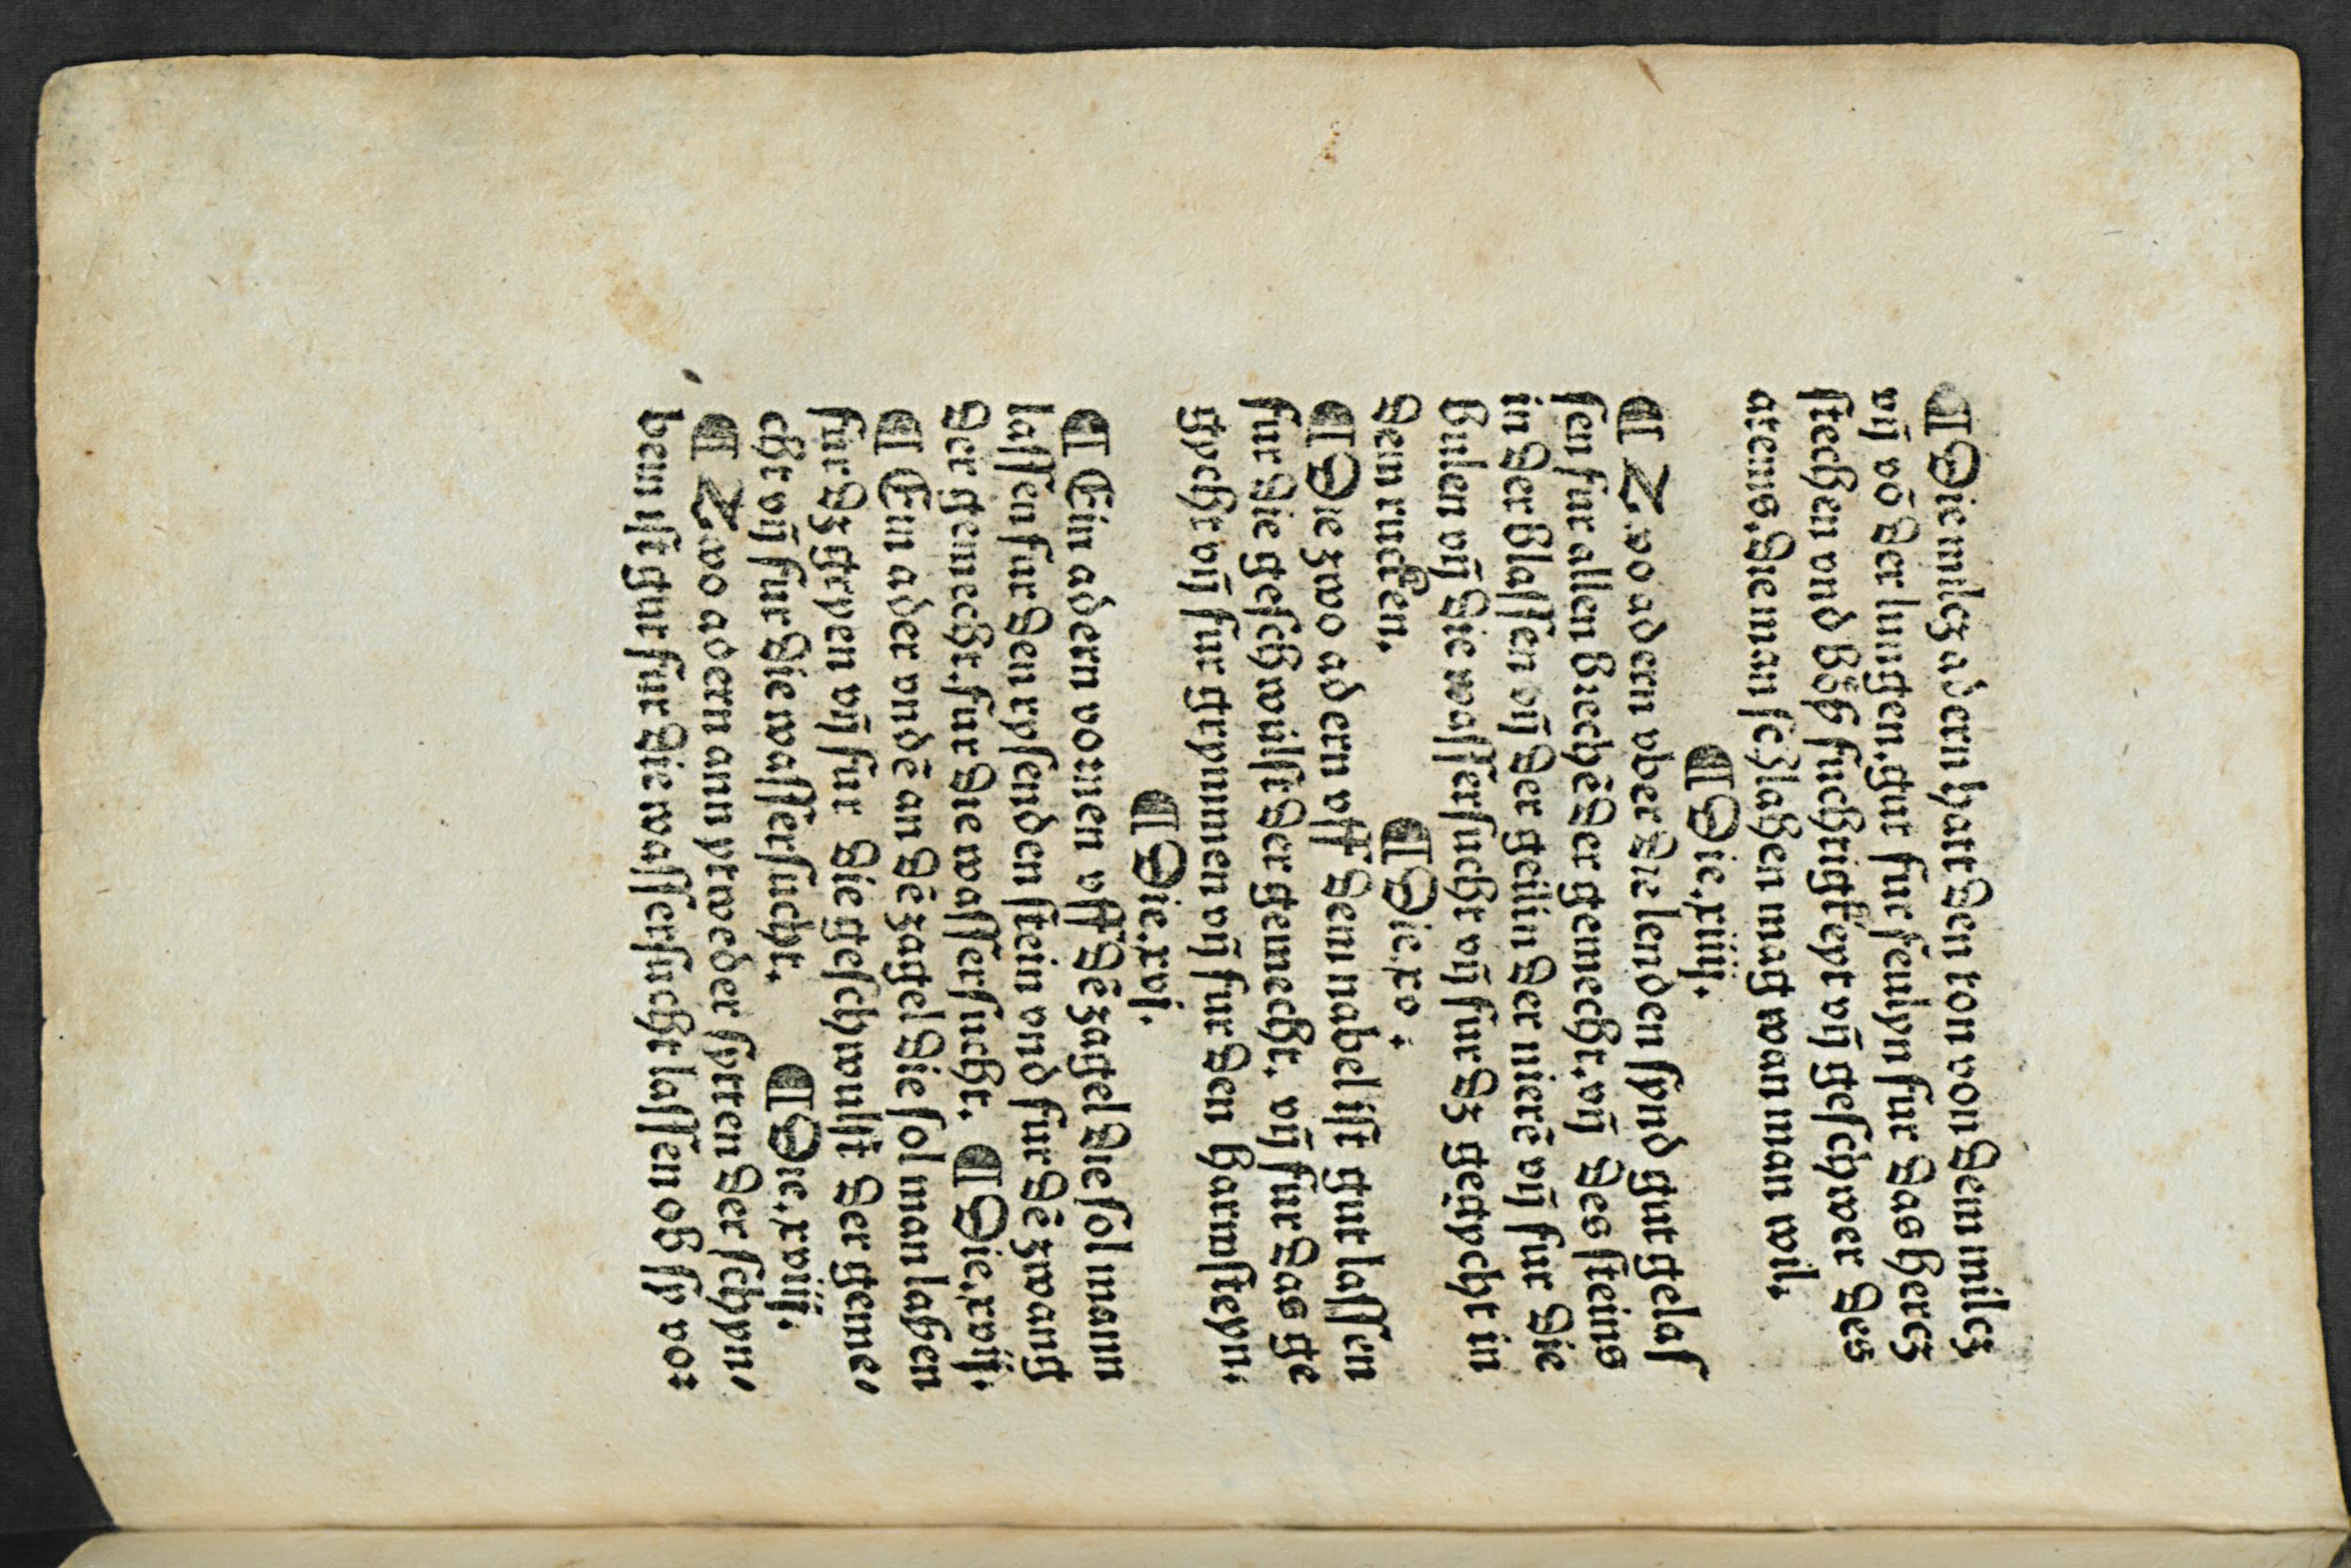 ¶ Die milcz adern hatt den ton von dem milcz
vñ võ der lungen. gut fur feulyn fur das hercz
stechen vnd bőß fuchtigkeyt vñ geschwer des
atems. die man schlahen mag wan man wil.
¶ Die .xiiij.
¶ Zwo adern vber die lenden synd gut gelas
sen fur allen biechē der gemecht. vñ des steins
in der blassen vñ der geil in der nierē vñ fur die
bulen vñ die wassersucht vñ fur dz gegycht in
dem rucken.
¶ Die .xv.
¶ Die zwo adern vff dem nabel ist gut lassen
fur die geschwulst der gemecht. vñ fur das ge
gycht vñ fur grymmen vñ fur den harmsteyn.
¶ Die .xvj.
¶ Ein adern vornen vff dē zagel die sol mann
lassen fur den rysenden stein vnd fur dē zwang
der gemecht. fur die wassersucht. ¶ Die .xvij.
¶ Ein ader vndē an dē zagel die sol man lahen
fur dz greyen vñ fur die geschwulst der geme,
cht vñ fur die wassersucht. ¶ Die .xviij.
¶ Zwo adern ann ytweder sytten der schyn,
beyn ist gut fur die wassersucht lassen ob sy vor